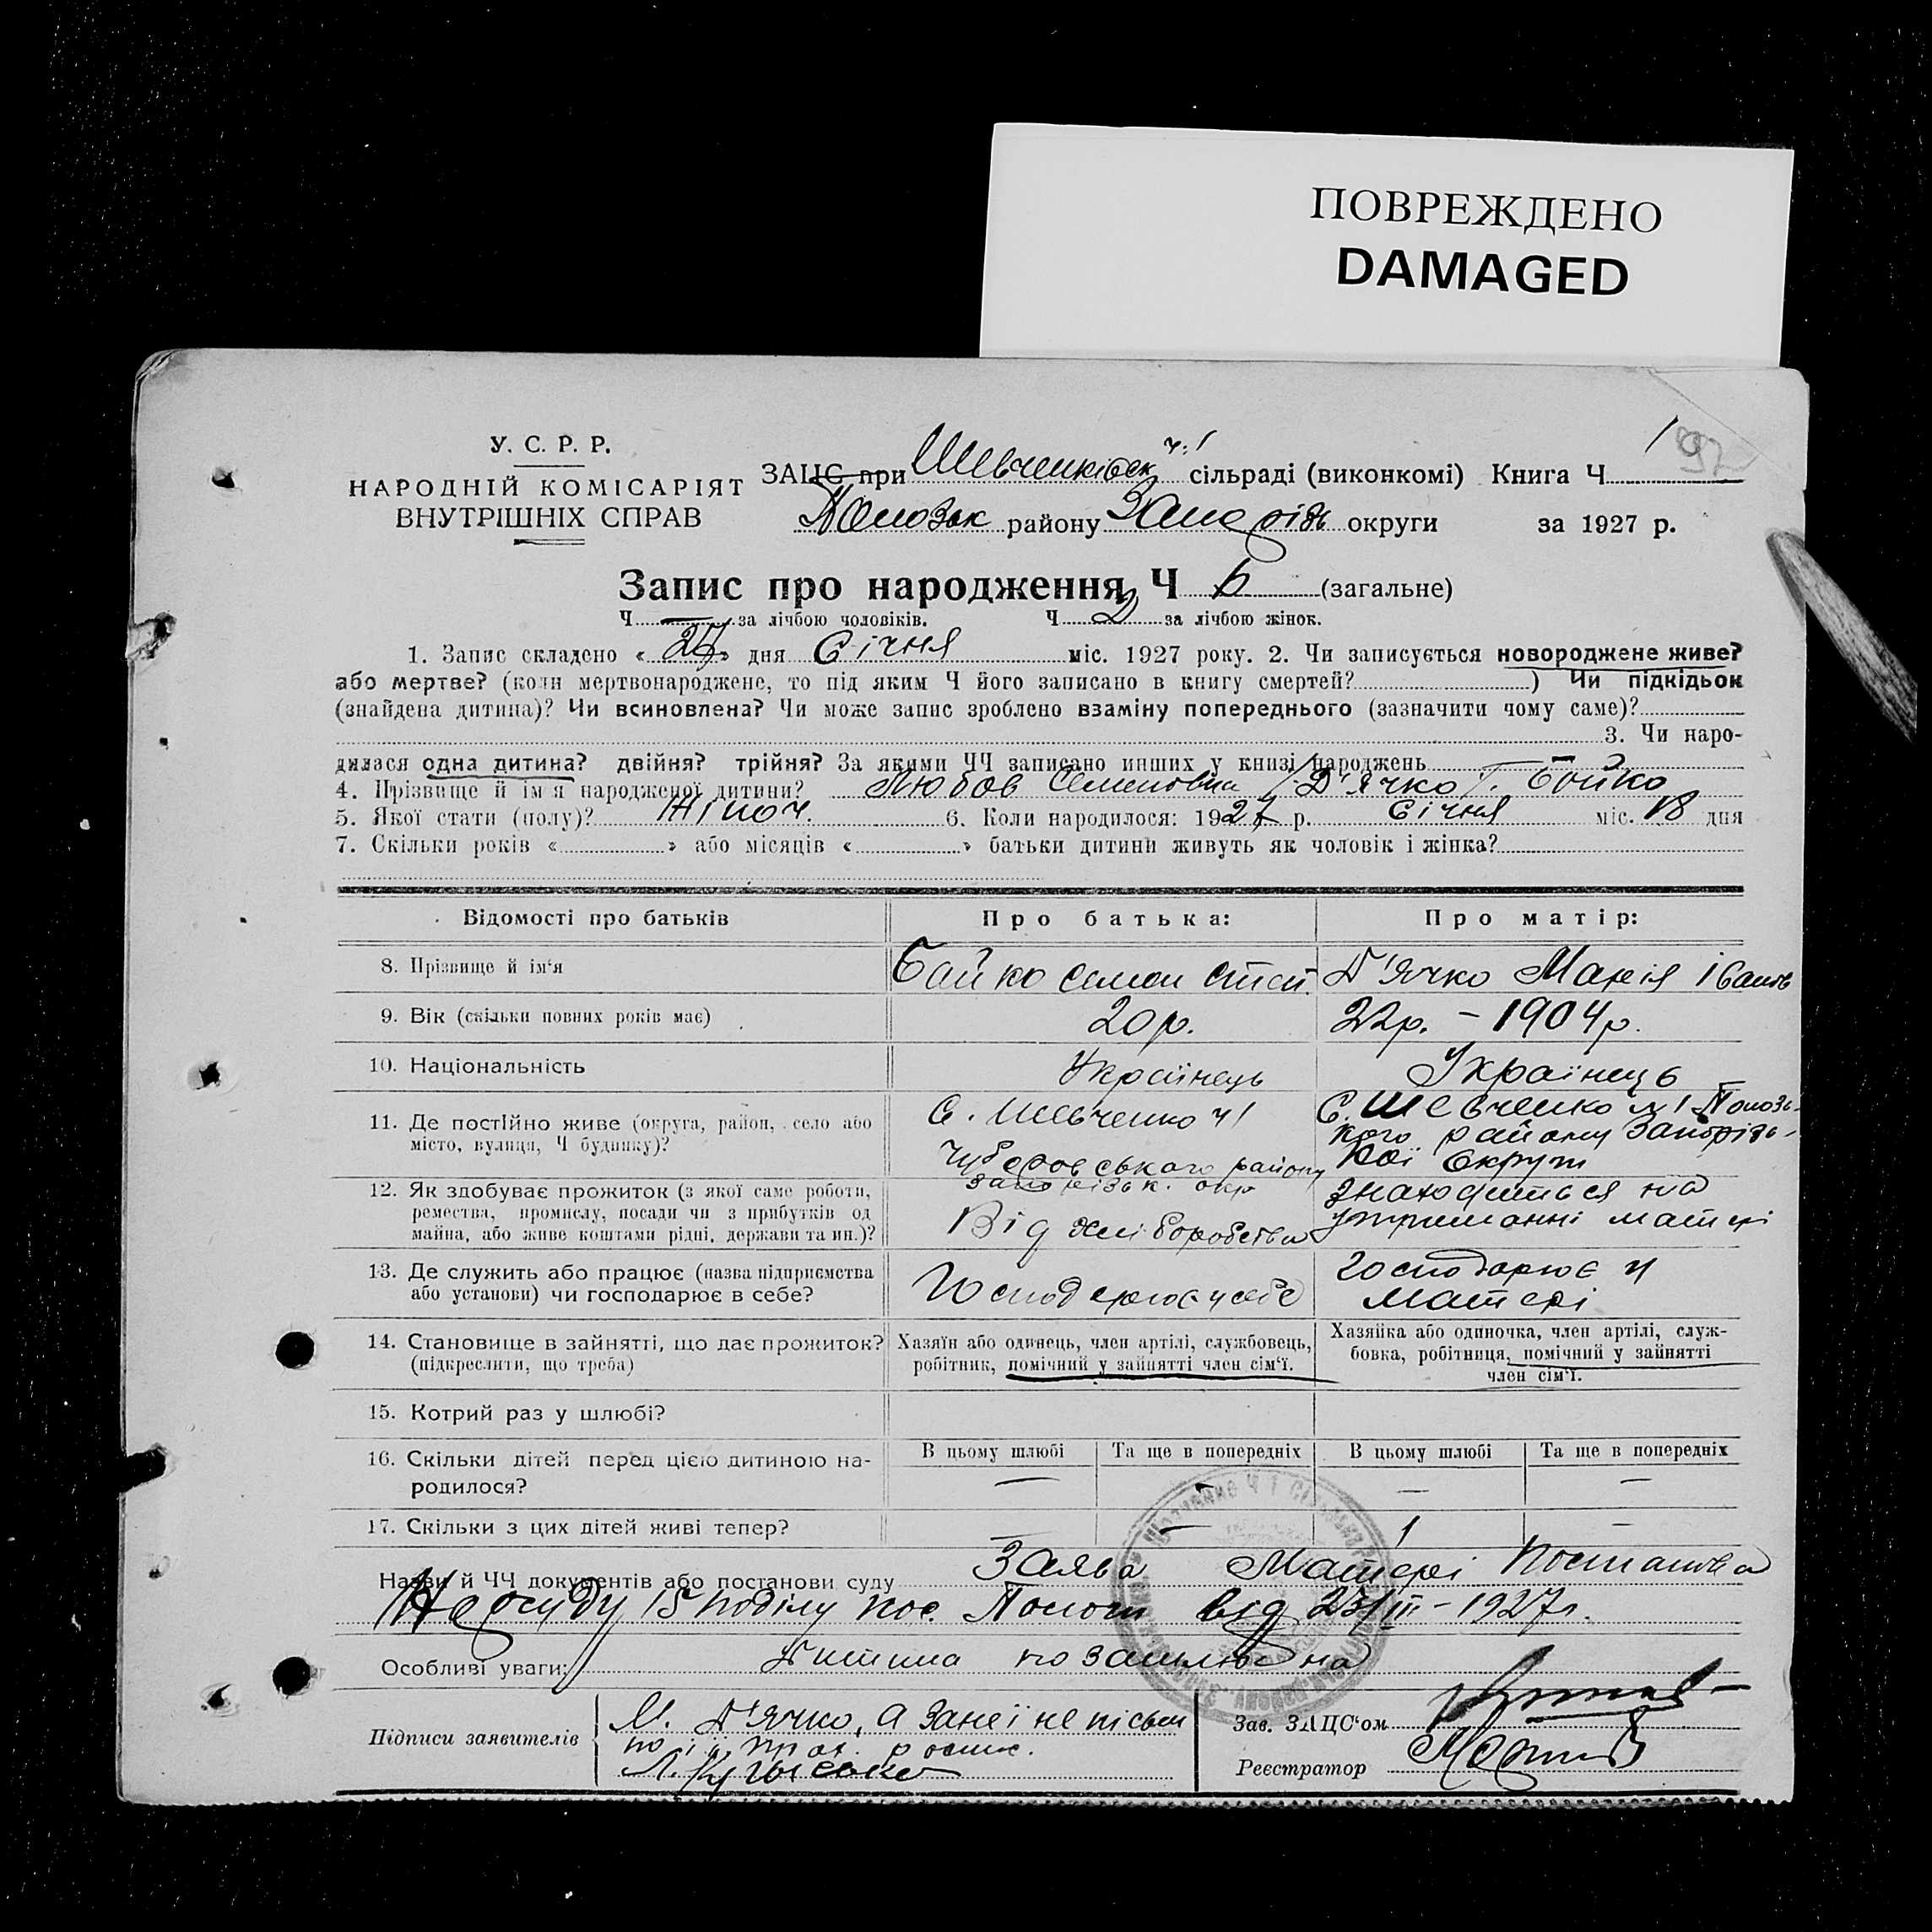 ПОВРЕЖДЕНО
DAMAGED
У. С. Р. Р.
НАРОДНІЙ КОМІСАРІЯТ
ВНУТРІШНІХ СПРАВ
ЗАЦС при Шевченківськ ч. 1 сільраді (виконкомі) Книга Ч 1
району округи за 1927 р.
Запис про народження Ч (загальне)
Ч — за лічбою чоловіків. Ч 2 за лічбою жінок.
1. Запис складено « » дня Січня міс. 1927 року. 2. Чи записується новороджене живе?
або мертве? (коли мертвонароджене, то під яким Ч його записано в книгу смертей? ) Чи підкідьок
(знайдена дитина)? Чи всиновлена? Чи може запис зроблено взаміну попереднього (зазначити чому саме)?
3. Чи наро-
дилася одна дитина? двійня? трійня? За якими ЧЧ записано инших у книзі народжень —
4. Прізвище й ім'я народженої дитини? Любов Семеновна Д'Ячко Бойко
5. Якої стати (полу)? Жіноч. 6. Коли народилося: 1927 р. Січня міс. 18 дня
7. Скільки років « » або місяців « » батьки дитини живуть як чоловік і жінка?
Відомості про батьків Про батька: Про матір:
8. Прізвище й ім'я Бойко Семен Степ. Д'Ячко Марія Іванів
9. Вік (скільки повних років має) 20 р. 22 р. – 1904 р.
10. Національність Українець Українець
11. Де постійно живе (округа, район, село або місто, вулиця, Ч будинку)? С. Шевченко ч 1
району
С. Шевченко ч 1 Пологів-
кого району Запоріз-
кої Округи
12. Як здобуває прожиток (з якої саме роботи,
ремества, промислу, посади чи з прибутків од
майна, або живе коштами рідні, держави та ин.)?
Від хліборобства
знаходиться на
утриманні матері
13. Де служить або працює (назва підприємства
або установи) чи господарює в себе?
Господарює у себе
Господарює у
матері
14. Становище в зайнятті, що дає прожиток?
(підкреслити, що треба)
Хазяїн або одинець, член артілі, службовець,
робітник, помічний у зайнятті член сім'ї.
Хазяйка або одиночка, член артілі, служ-
бовка, робітниця, помічний у зайнятті
член сім'ї.
15. Котрий раз у шлюбі?
16. Скільки дітей перед цією дитиною на-
родилося?
В цьому шлюбі Та ще в попередніх В цьому шлюбі Та ще в попередніх
— - — —
17. Скільки з цих дітей живі тепер? — — 1 —
Назви й ЧЧ документів або постанови суду Заява Матері Постанова
Нарсуду 15 поділу пос. Пологи від 23/III – 1927 р.
Особливі уваги: Дитина позашлюбна
Підписи заявителів М. Д'Ячко, а за неї не письм
по її прох. роспис.
Зав. ЗАЦС'ом
Реєстратор